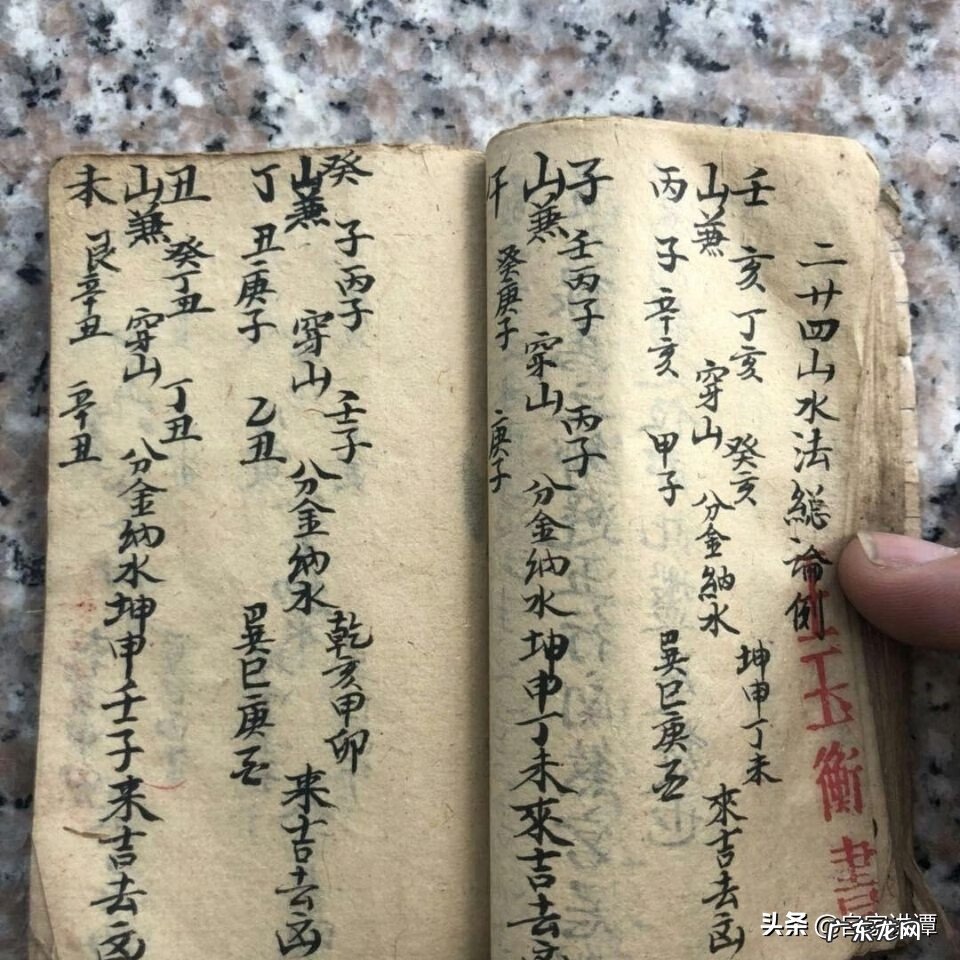 二廿四山水法總論例
玉衡書
壬亥丁亥癸亥坤申丁未
山兼穿山分金納水來吉去凶
丙子辛亥甲子巽巳庚酉
子壬丙子丙子
山兼穿山分金納水坤申丁未來吉去凶
午癸庚子庚子
癸子丙子壬子乾亥甲卯
山兼穿山分金納水來吉去凶
丁丑庚子乙丑巽巳庚酉
丑癸丁丑丁丑
山兼穿山分金納水坤申壬子來吉去凶
未艮辛丑辛丑
头条
东龙网